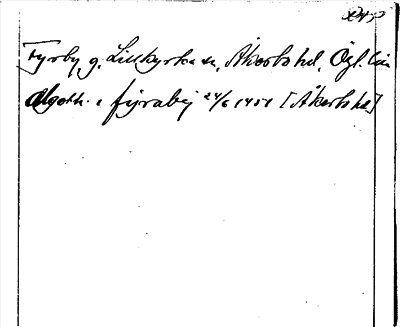 Fyrby g. Lillkyrka sn, Åkerbo hd, Ögl. län
Algoth. i fyraby 24/6 1451 [Åkerbo hd]